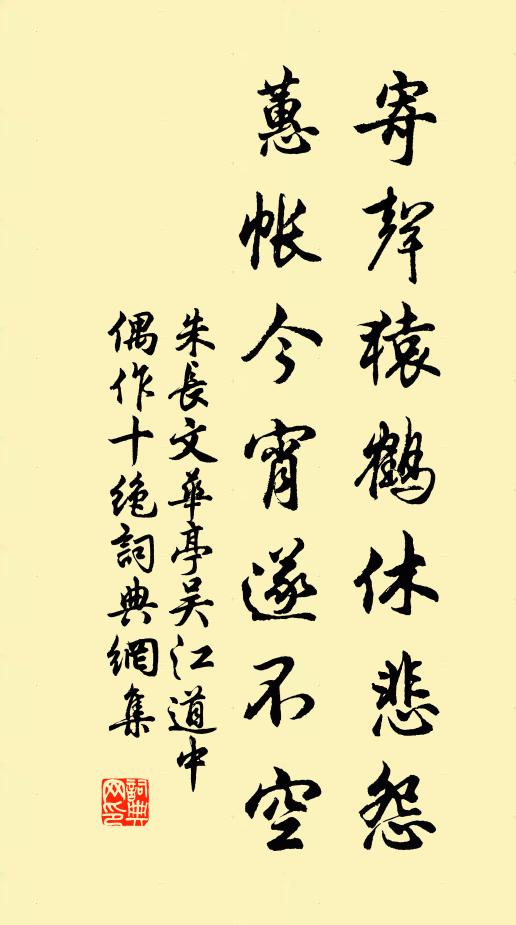 寄聲猿鶴休悲怨
蕙帳今宵遂不空
朱長文華亭吴江道中
偶作十絶詞典網集
詞典
网印